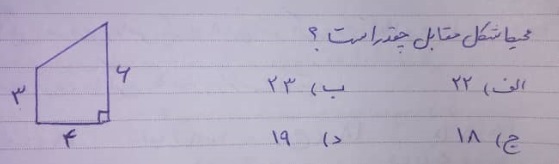 محیط شکل مقابل چقدر است ؟
الف) ۲۲ ب) ۲۳
ج) ۱۸ د) ۱۹
۶
۳
۴